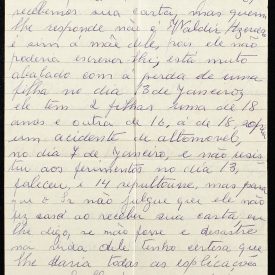 recebemos sua carta, mas quem
lhe responde não é Waldir
é sim a mãe dele, pois ele não
poderia escrever-lhe, está muito
abalado com a perda de uma
filha no dia 13 de Janeiro,
ele tem 2 filhas uma de 18
anos e outra de 16, a de 18, sofreu
um acidente de altomovel,
no dia 7 de Janeiro, e não resis
tiu aos ferimentos no dia 13,
faliceu, e 14 repultouse, mas para
que o Sr não julgue que ele não
fez caso ao receber sua carta, eu
lhe digo, se não fosse o desastre
na vida dele tinho certesa que
lhe daria todas as esplicações